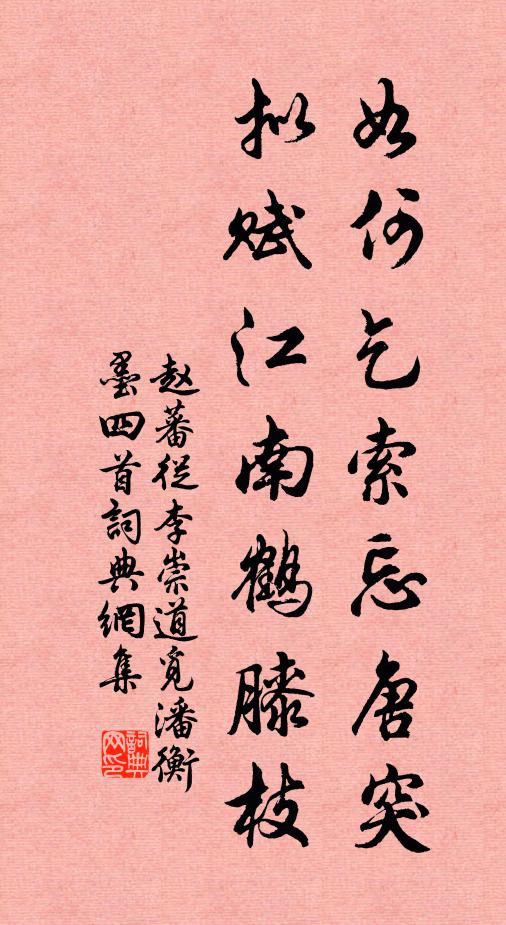 如何乞索忘唐突
拟赋江南鹤膝枝
赵蕃從李崇道覓潘衡
墨四首詞典網集
詞典网印